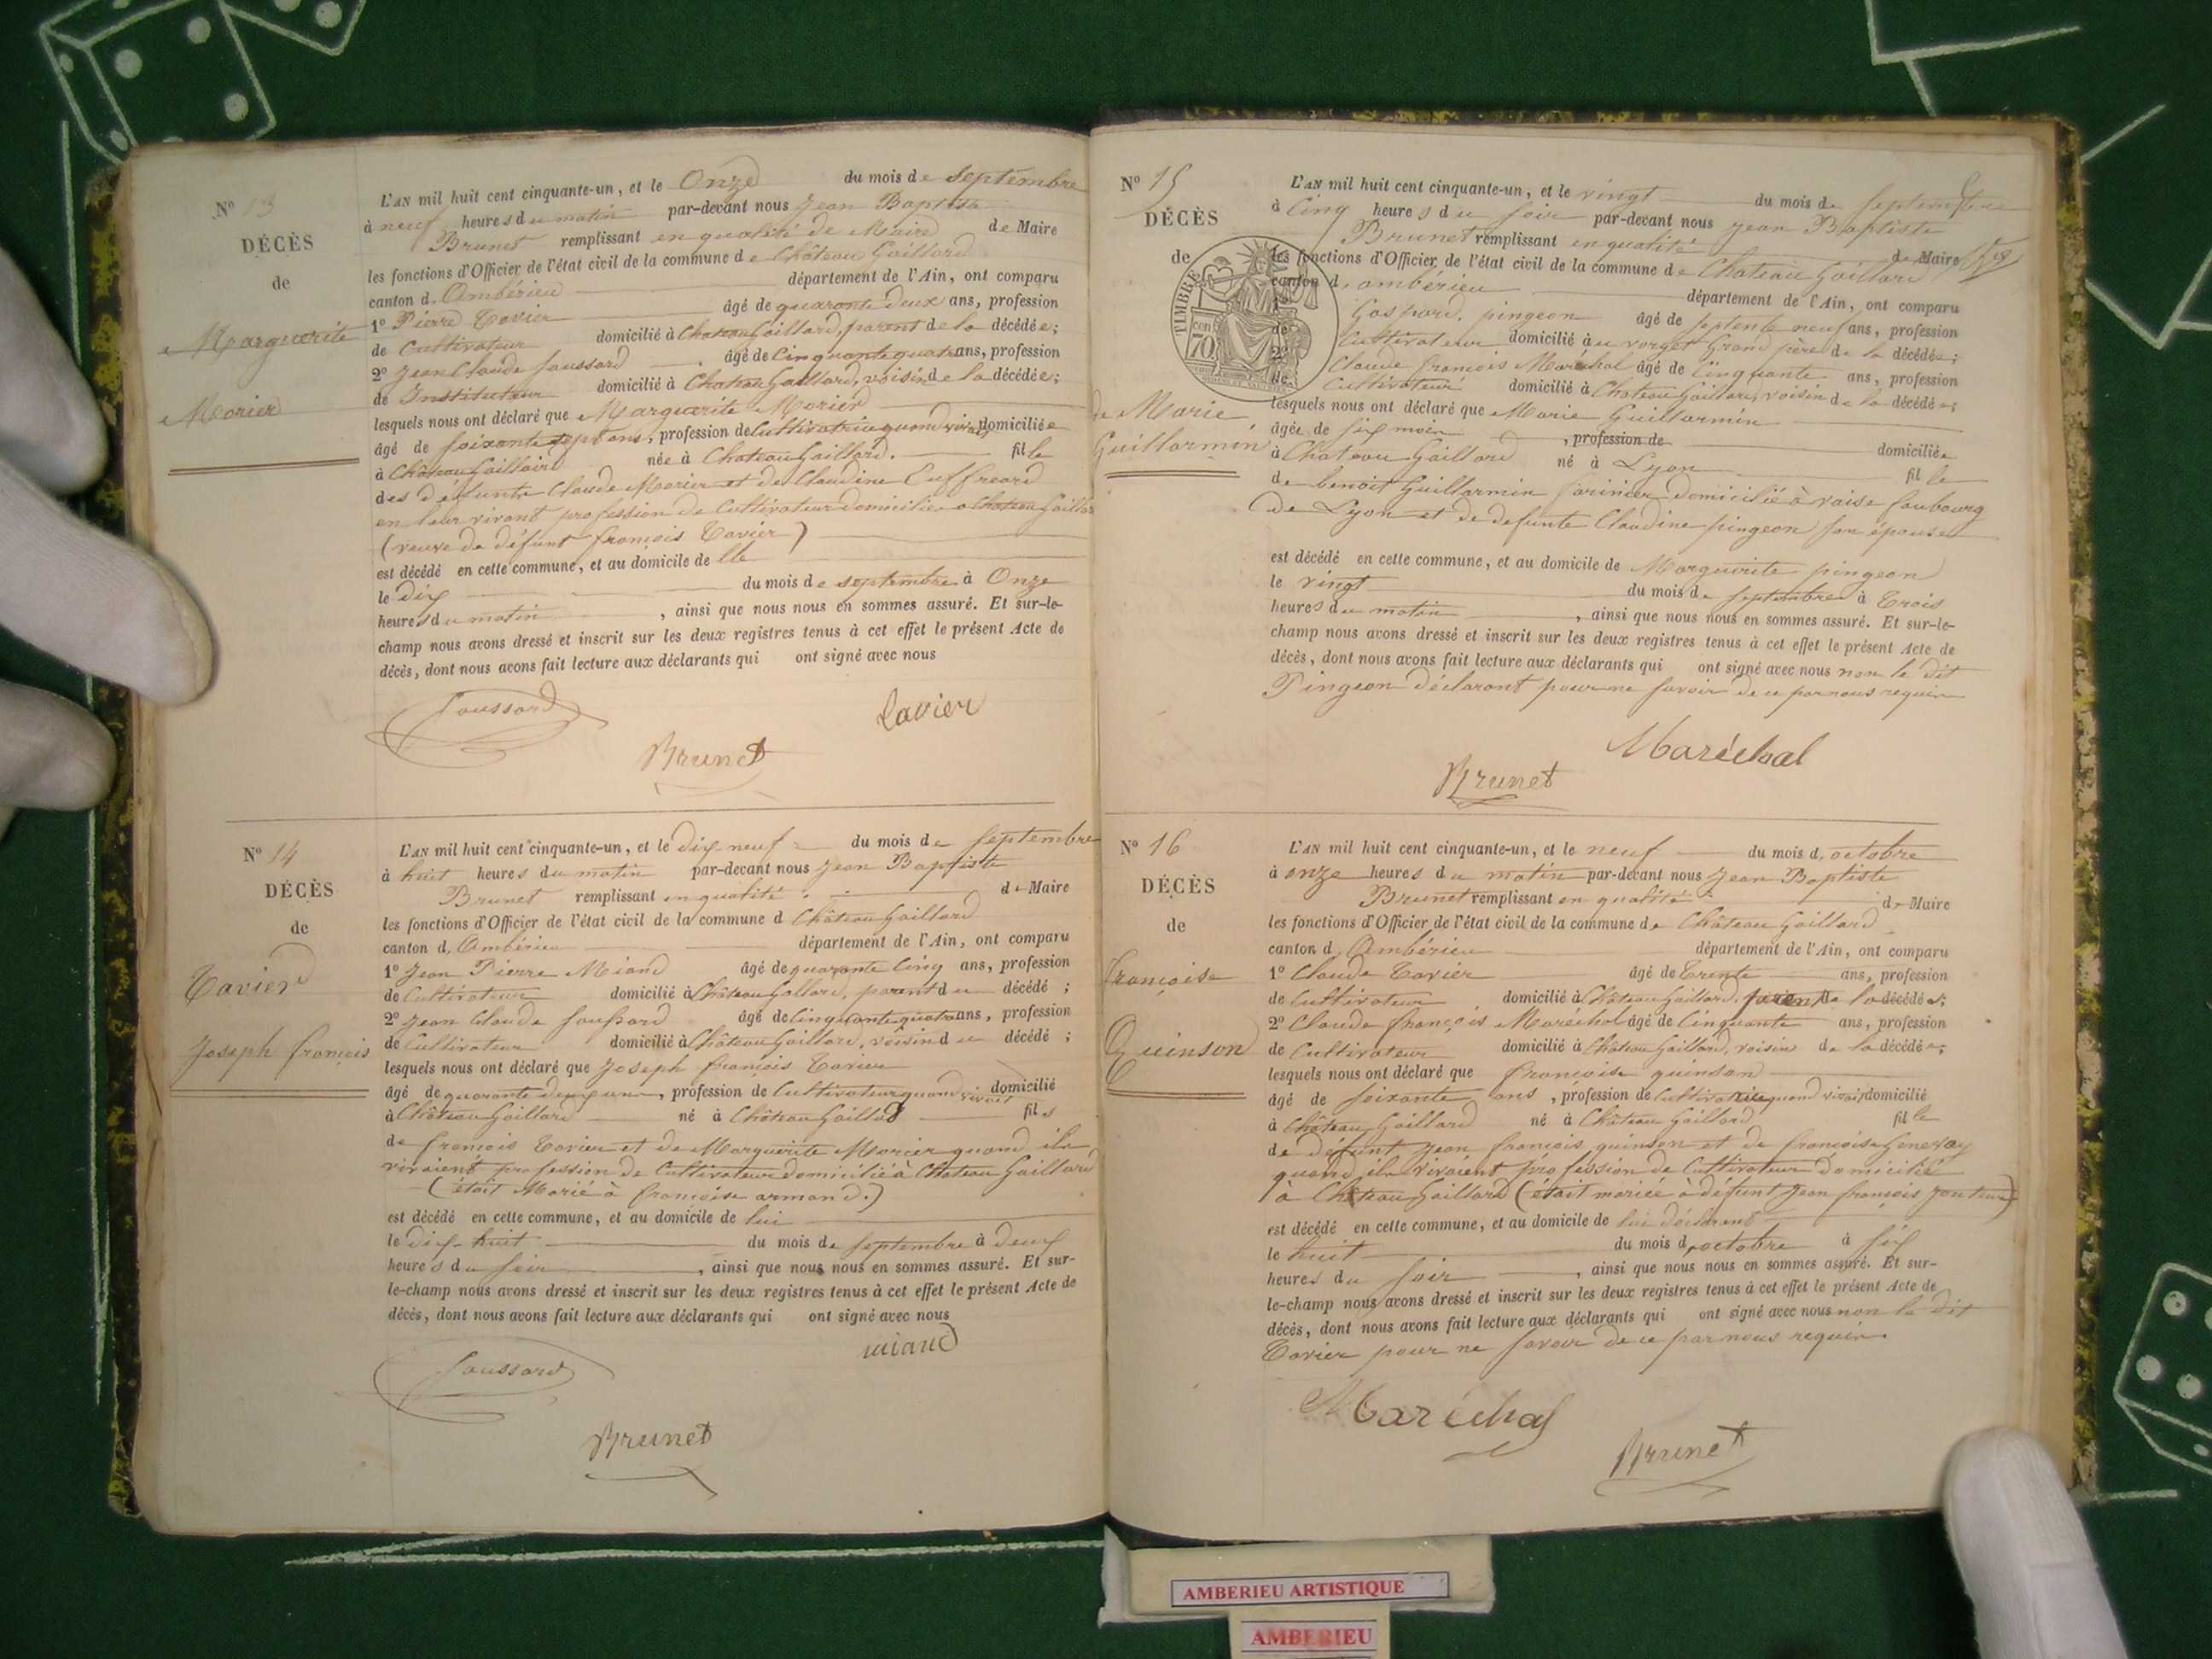 N° 13
DÉCÈS
de
Marguerite
Morier
L'AN mil huit cent cinquante-un, et le Onze du mois de Septembre
à neuf heures du matin par-devant nous Jean Baptiste
Brunet remplissant en qualité de Maire de Maire
les fonctions d'Officier de l'état civil de la commune de Château Gaillard
canton d. Ambérieu département de l'Ain, ont comparu
1° Pierre Tavier âgé de quarante deux ans, profession
de Cultivateur domicilié à Chateau Gaillard, parent de la décédée;
2° Jean Claude Joussard âgé de Cinquante quatre ans, profession
de Instituteur domicilié à Chateau Gaillard, voisin de la décédée;
lesquels nous ont déclaré que Marguerite Morier
âgé de soixante sept ans, profession de Cultivatrice quand vivait domiciliée
à Château Gaillard née à Chateau Gaillard. fille
des défunts Claude Morier et de Claudine
en leur vivant profession de Cultivateur domicilié a Chateau Gaillard
(veuve de défunt françois Tavier)
est décédé en cette commune, et au domicile de lle
le dix du mois de septembre à Onze
heures du matin, ainsi que nous nous en sommes assuré. Et sur-le-
champ nous avons dressé et inscrit sur les deux registres tenus à cet effet le présent Acte de
décès, dont nous avons fait lecture aux déclarants qui ont signé avec nous
Joussard
Tavier
Brunet
N° 14
DÉCÈS
de
Tavier
Joseph françois
L'AN mil huit cent cinquante-un, et le dix neuf du mois de Septembre
à huit heures du matin par-devant nous Jean Baptiste
Brunet remplissant en qualité de Maire
les fonctions d'Officier de l'état civil de la commune d Château Gaillard
canton d. Ambérieu département de l'Ain, ont comparu
1° Jean Pierre Miand âgé de quarante Cinq ans, profession
de Cultivateur domicilié à Château Gaillard, parent du décédé ;
2° Jean Claude Joussard âgé de Cinquante quatre ans, profession
de Cultivateur domicilié à Château Gaillard, voisin du décédé ;
lesquels nous ont déclaré que Joseph françois Tavier
âgé de quarante deux ans, profession de Cultivateur quand vivait domicilié
à Château Gaillard né à Château Gaillard fils
de françois Tavier et de Marguerite Morier quand ils
vivaient profession de Cultivateur domicilié à Chateau Gaillard
(était Marié à françoise armand.)
est décédé en cette commune, et au domicile de lui
le dix-huit du mois de septembre à deux
heures du soir, ainsi que nous nous en sommes assuré. Et sur-
le-champ nous avons dressé et inscrit sur les deux registres tenus à cet effet le présent Acte de
décès, dont nous avons fait lecture aux déclarants qui ont signé avec nous
miand
Joussard
Brunet
N° 15
DÉCÈS
de
TIMBRE
70
de Marie
Guillarmin
L'AN mil huit cent cinquante-un, et le vingt du mois de septembre
à Cinq heures du soir par-devant nous Jean Baptiste
Brunet remplissant en qualité de Maire
les fonctions d'Officier de l'état civil de la commune de Chateau Gaillard
canton d. ambérieu département de l'Ain, ont comparu
Gaspard. pingeon âgé de septente neuf ans, profession
de Cultivateur domicilié à au vorget Grand père de la décédée;
2° Claude françois Maréchal âgé de Cinquante ans, profession
de Cultivateur domicilié à Chateau Gaillard, voisin de la décédée;
lesquels nous ont déclaré que Marie Guillarmin
âgée de six mois, profession de domiciliée
à Chateau Gaillard né à Lyon fille
de benoit Guillarmin farinier domicilié à vaise faubourg
de Lyon et de defunte Claudine pingeon son épouse
est décédé en cette commune, et au domicile de Marguerite pingeon
le vingt du mois de septembre à Trois
heures du matin, ainsi que nous nous en sommes assuré. Et sur-le-
champ nous avons dressé et inscrit sur les deux registres tenus à cet effet le présent Acte de
décès, dont nous avons fait lecture aux déclarants qui ont signé avec nous non le dit
Pingeon déclarant pour ne savoir de ce par nous requis
Maréchal
Brunet
N° 16
DÉCÈS
de
françoise
Quinson
L'AN mil huit cent cinquante-un, et le neuf du mois d. octobre
à onze heures du matin par-devant nous Jean Baptiste
Brunet remplissant en qualité de Maire
les fonctions d'Officier de l'état civil de la commune de Château Gaillard
canton d. Ambérieu département de l'Ain, ont comparu
1° Claude Tavier âgé de Trente ans, profession
de Cultivateur domicilié à Château Gaillard, parent de la décédée;
2° Claude françois Maréchal âgé de Cinquante ans, profession
de Cultivateur domicilié à Château Gaillard, voisin de la décédée;
lesquels nous ont déclaré que françoise quinson
âgé de soixante ans, profession de Cultivatrice quand vivait domicilié
à Château Gaillard né à Château Gaillard fille
de défunt Jean françois quinson et de françoise Genevay
quand ils vivaient profession de Cultivateur domicilié
à Château Gaillard (était mariée à défunt Jean françois
est décédé en cette commune, et au domicile de lui déclarant
le huit du mois d octobre à six
heures du soir, ainsi que nous nous en sommes assuré. Et sur-
le-champ nous avons dressé et inscrit sur les deux registres tenus à cet effet le présent Acte de
décès, dont nous avons fait lecture aux déclarants qui ont signé avec nous non le dit
Tavier pour ne savoir de ce par nous requis.
Maréchal
Brunet
AMBERIEU ARTISTIQUE
AMBERIEU